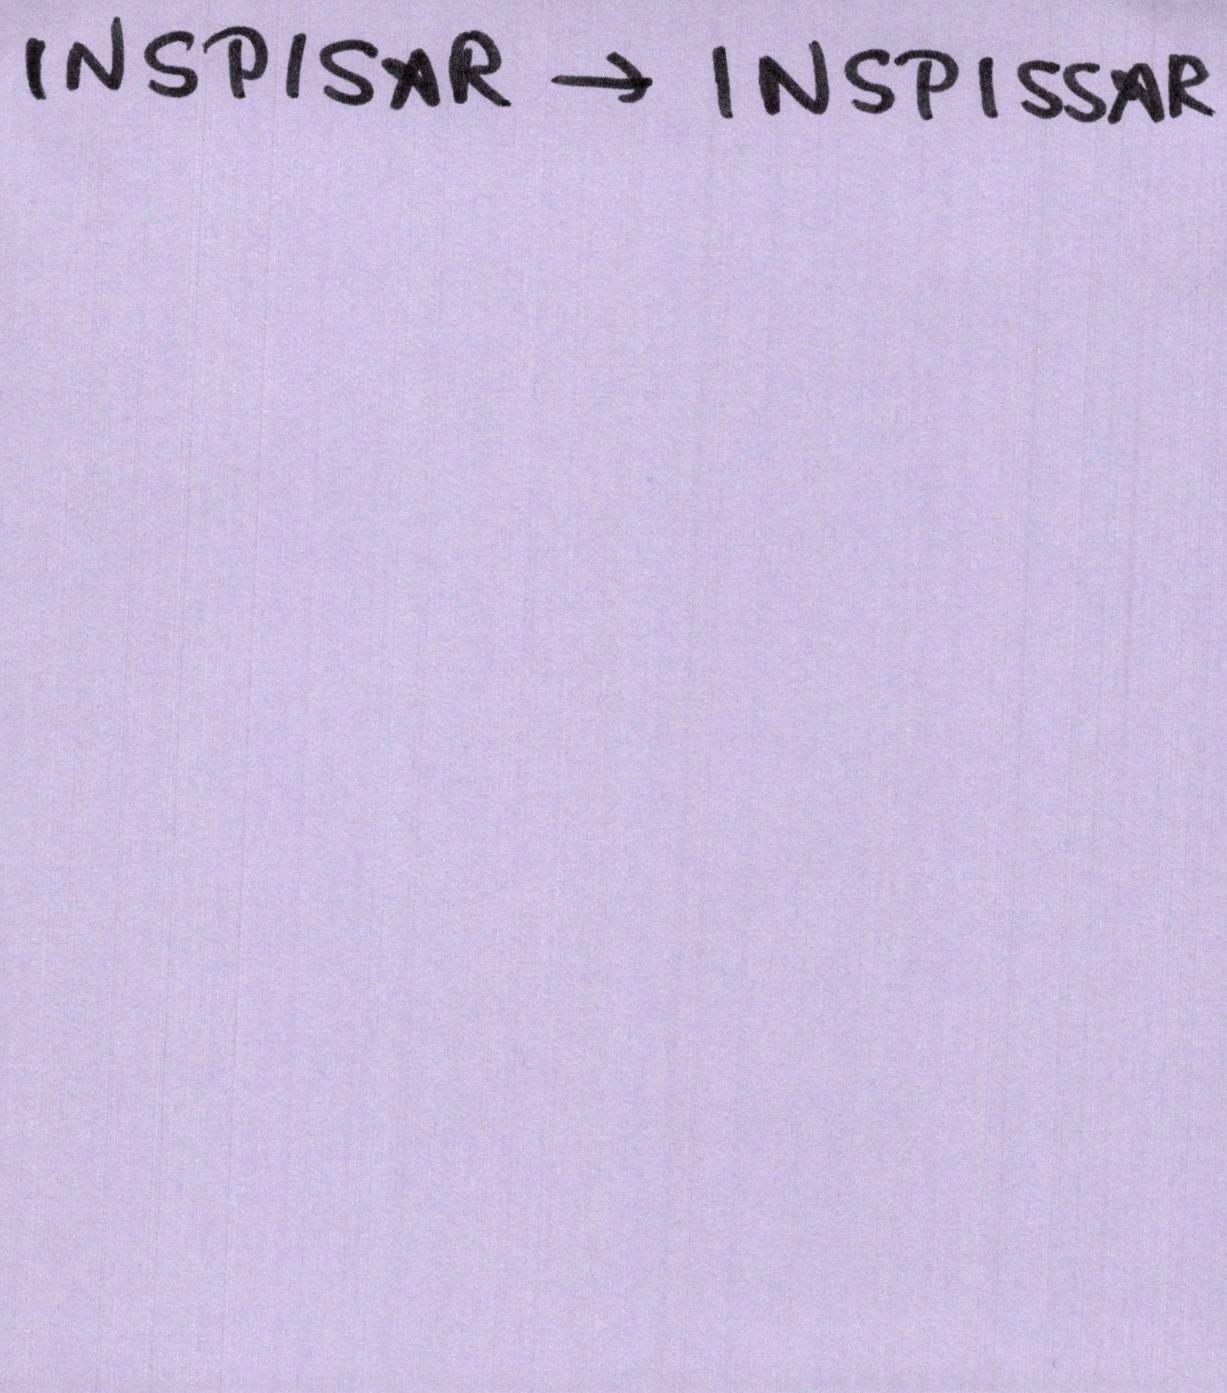 INSPISAR → INSPISSAR